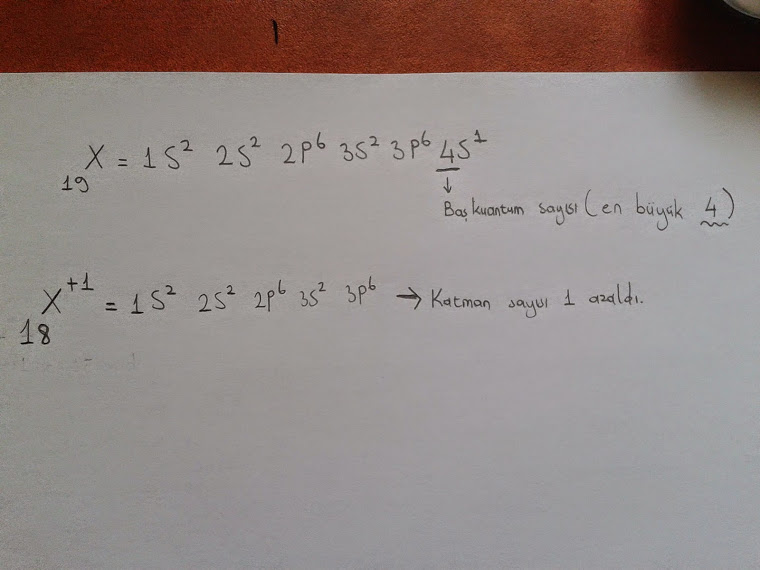 ₁₉X = 1S² 2S² 2P⁶ 3S² 3P⁶ 4S¹
↓
Baş kuantum sayısı (en büyük 4)
₁₈X⁺¹ = 1S² 2S² 2P⁶ 3S² 3P⁶ → Katman sayısı 1 azaldı.